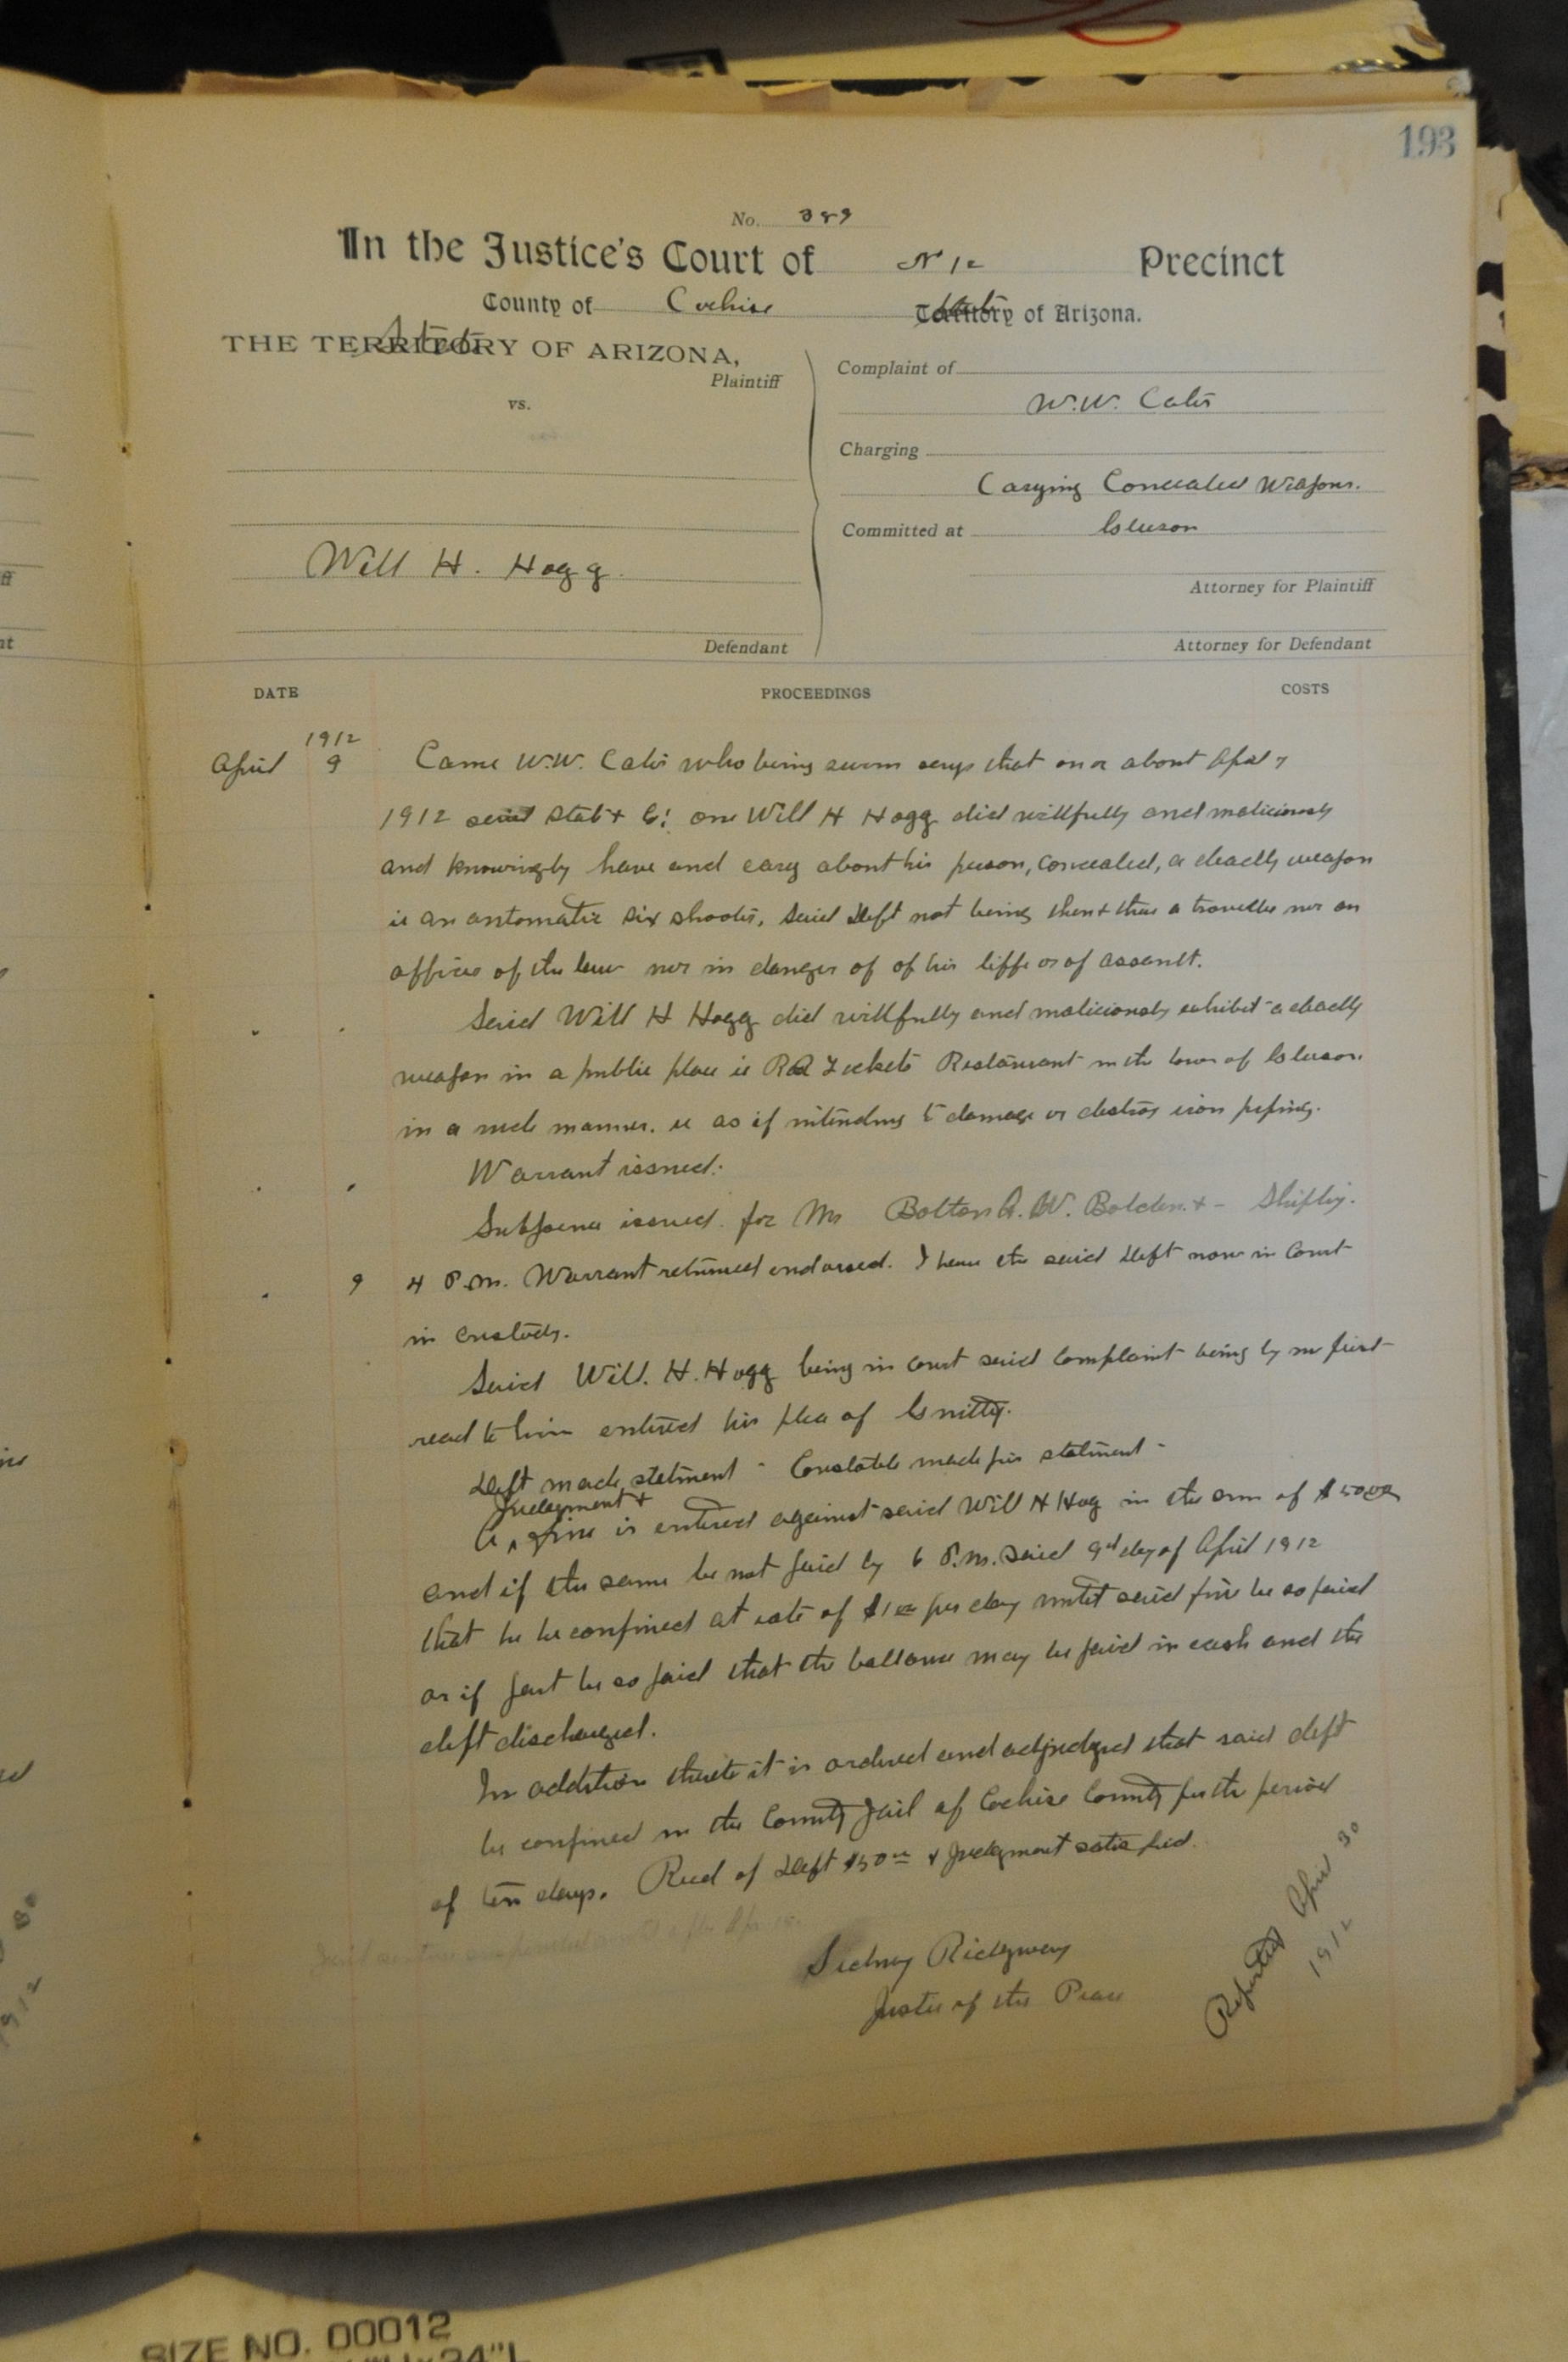 193
No. 389
In the Justice's Court of No 12 Precinct
County of Cochise State Territory of Arizona.
State
THE TERRITORY OF ARIZONA,
Plaintiff
vs.
Will H. Hogg.
Defendant
Complaint of
W.W. Cates
Charging
Carying Concealed Weapons.
Committed at Gleeson
Attorney for Plaintiff
Attorney for Defendant
DATE PROCEEDINGS COSTS
1912
April 9 Came W.W. Cates who being sworn says that on or about April 7
1912 said State & Co: one Will H Hogg did willfully and maliciously
and knowingly have and cary about his person, concealed, a deadly weapon
ie an automatic six shooter, Said Deft not being then & there a traveller nor an
officer of the law nor in danger of of his liffe or of assault.
Said Will H Hogg did willfully and maliciously exhibit a deadly
weapon in a public place ie Restaurant in the town of Gleeson
in a rude manner. ie as if intending to damage or destroy iron piping.
Warrant issued.
Subpoena issued for Mr Bolton A. W. Bolden. & - Shipley.
9 4 P.m. Warrant returned endorsed. I have the said Deft now in Court
in custody.
Said Will. H. Hogg being in court said Complaint being by me first
read to him entered his plea of Guilty.
Deft made statment - Constable made his statment -
Judgement &
A fine is entered against said Will H Hog in the sum of $50.00
and if the same be not paid by 6 P.m. said 9th day of April 1912
that he be confined at rate of $1.00 per day until said fine be so paid
or if part be so paid that the ballance may be paid in cash and the
deft discharged.
In addition thereto it is ordered and adjudged that said deft
be confined in the County Jail of Cochise County for the period
of ten days. Recd of Deft $50.00 & Judgment satisfied.
Sidney Ridgway
Justice of the Peace
Reported April 30
1912
SIZE NO. 00012
24"L